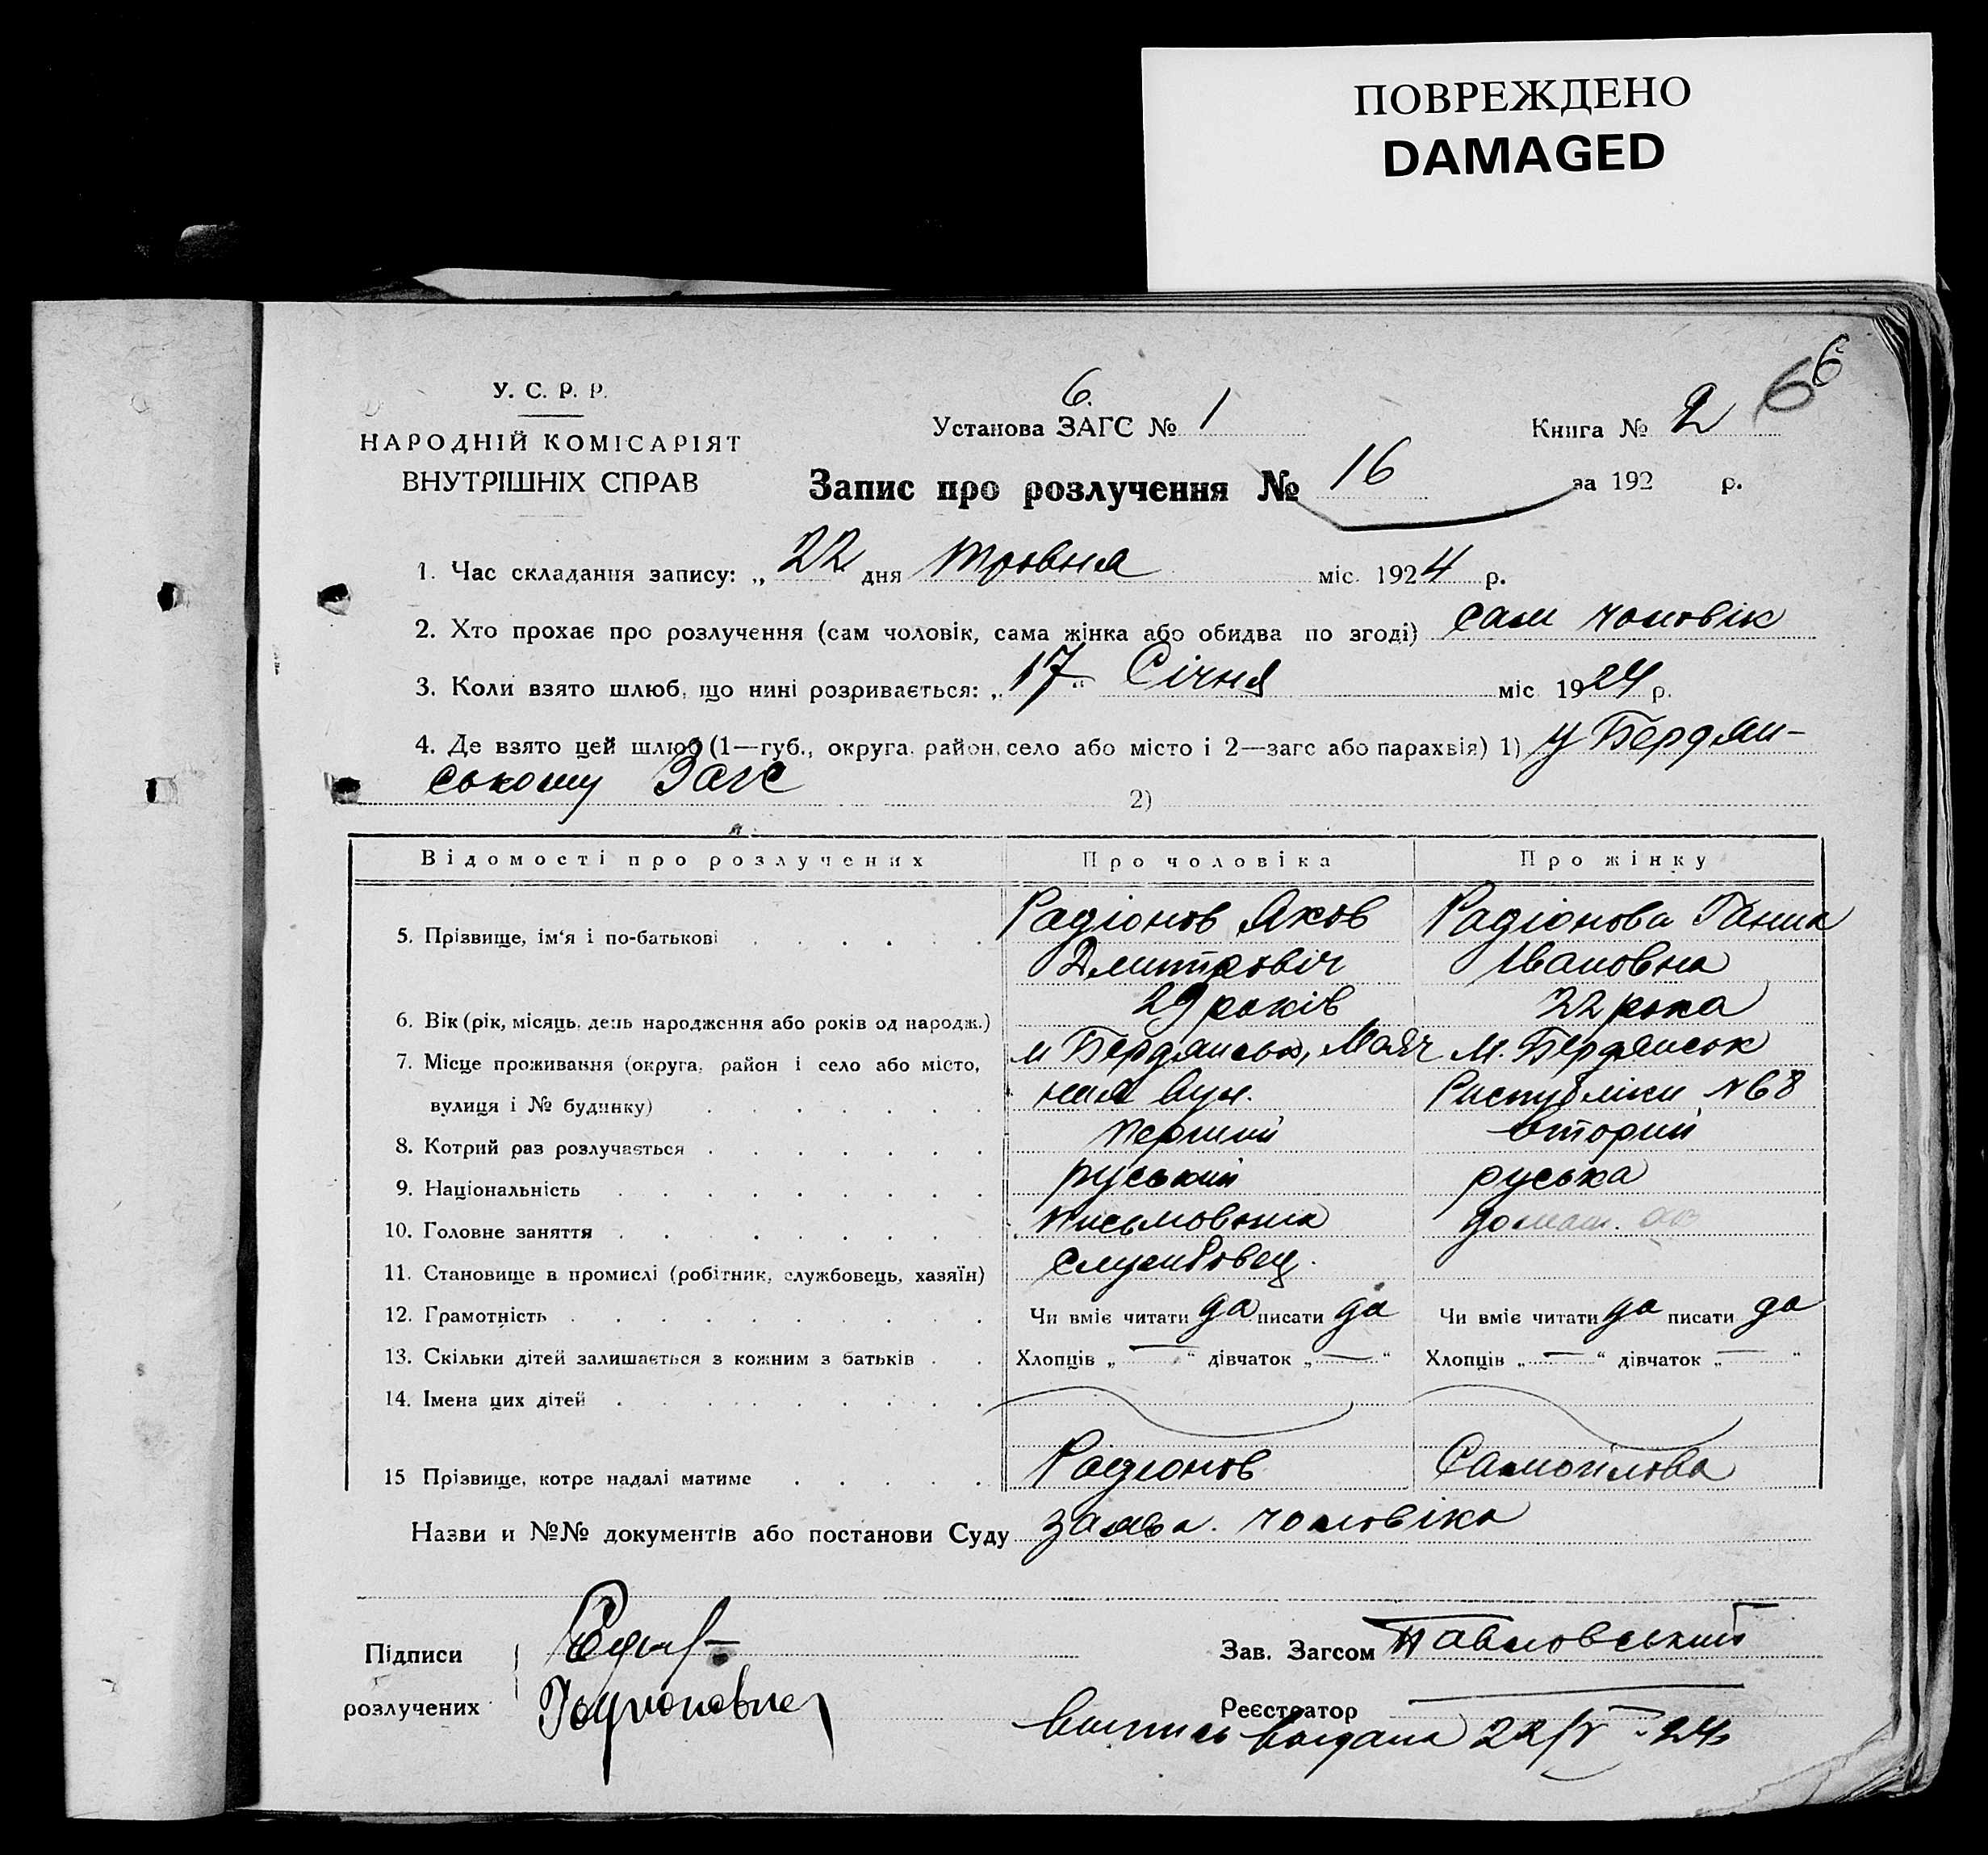 ПОВРЕЖДЕНО
DAMAGED
6
6
У. С. Р. Р.
НАРОДНІЙ КОМІСАРІЯТ
ВНУТРІШНІХ СПРАВ
6.
Установа ЗАГС № 1
Книга № 2
Запис про розлучення № 16
за 192 р.
1. Час складання запису: „ 22 дня Травня міс. 1924 р.
2. Хто прохає про розлучення (сам чоловік, сама жінка або обидва по згоді) сам чоловік
3. Коли взято шлюб, що нині розривається: „ 17 “ Січня міс 1924 р.
4. Де взято цей шлюб (1—губ., округа, район, село або місто і 2—загс або парахвія) 1) у Бердян-
ському Загс 2)
Відомості про розлучених Про чоловіка Про жінку
5. Прізвище, ім‘я і по-батькові Радіонов Яков Радіонова Ганна
Дмитровіч Івановна
6. Вік (рік, місяць, день народження або років од народж.) 29 років 22 рока
7. Місце проживання (округа, район і село або місто, м Бердянськ, Маяч м. Бердянськ
вулиця і № будинку) ная вул. Риспубліки № 68
8. Котрий раз розлучається перший вторий
9. Національність руський руська
10. Головне заняття письмовник домаш.
11. Становище в промислі (робітник, службовець, хазяїн) службовец.
12. Грамотність Чи вміє читати да писати да Чи вміє читати да писати да
13. Скільки дітей залишається з кожним з батьків Хлопців „ — “ дівчаток „ — “ Хлопців „ — “ дівчаток „ — “
14. Імена цих дітей
15 Прізвище, котре надалі матиме Радіонов Самойлова
Назви и №№ документів або постанови Суду заява. чоловіка
Підписи
розлучених
Зав. Загсом Павловський
Реєстратор
Выпись выдана 22/V - 24